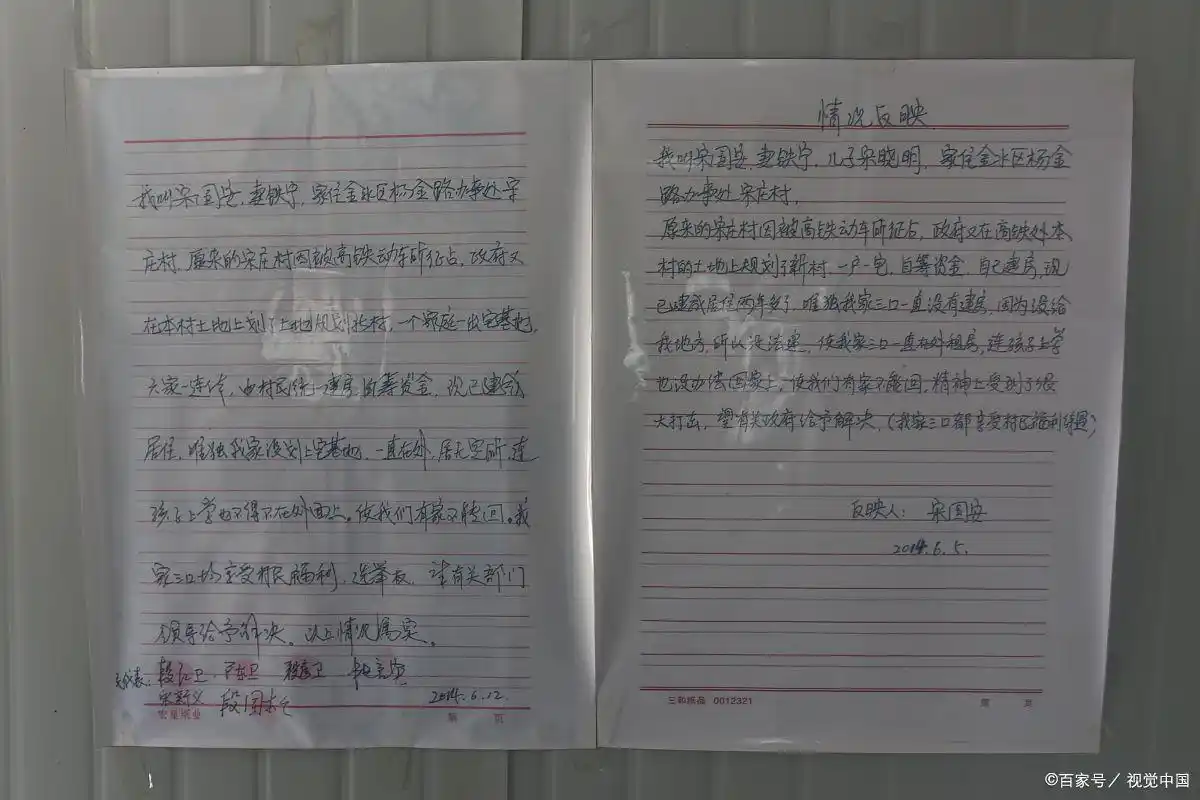 我叫宋国安,妻铁宁,家住金水区杨金路办事处宋
庄村,原来的宋庄村因被高铁动车所征占,政府又
在本村土地上划了土地规划新村,一个家庭一出宅基地,
大家一连体,由村民统一建房,自筹资金,现已建成
居住,唯独我家没划上宅基地,一直在外,居无定所,连
孩子上学也不得不在外面上。使我们有家不能回。我
家三口均享受村民福利,选举权,请有关部门
领导给予解决。以上情况属实。
段红卫
宋新义 段国
2014.6.12.
宏星纸业 第 页
情况反映
我叫宋国安,妻铁宁,儿子宋晓明,家住金水区杨金
路办事处宋庄村,
原来的宋庄村因被高铁动车所征占,政府又在高铁外本
村的土地上规划了新村,一户一宅,自筹资金,自己建房,现
已建成居住两年多了,唯独我家三口一直没有建房,因为没给
我地方,所以没法建,使我家三口一直在外租房,连孩子上学
也没办法回家上,使我们有家不能回,精神上受到了很
大打击,望有关政府给予解决,(我家三口都享受村民福利待遇)
反映人:宋国安
2014.6.5.
三和纸品 0012321 第 页
©百家号/视觉中国